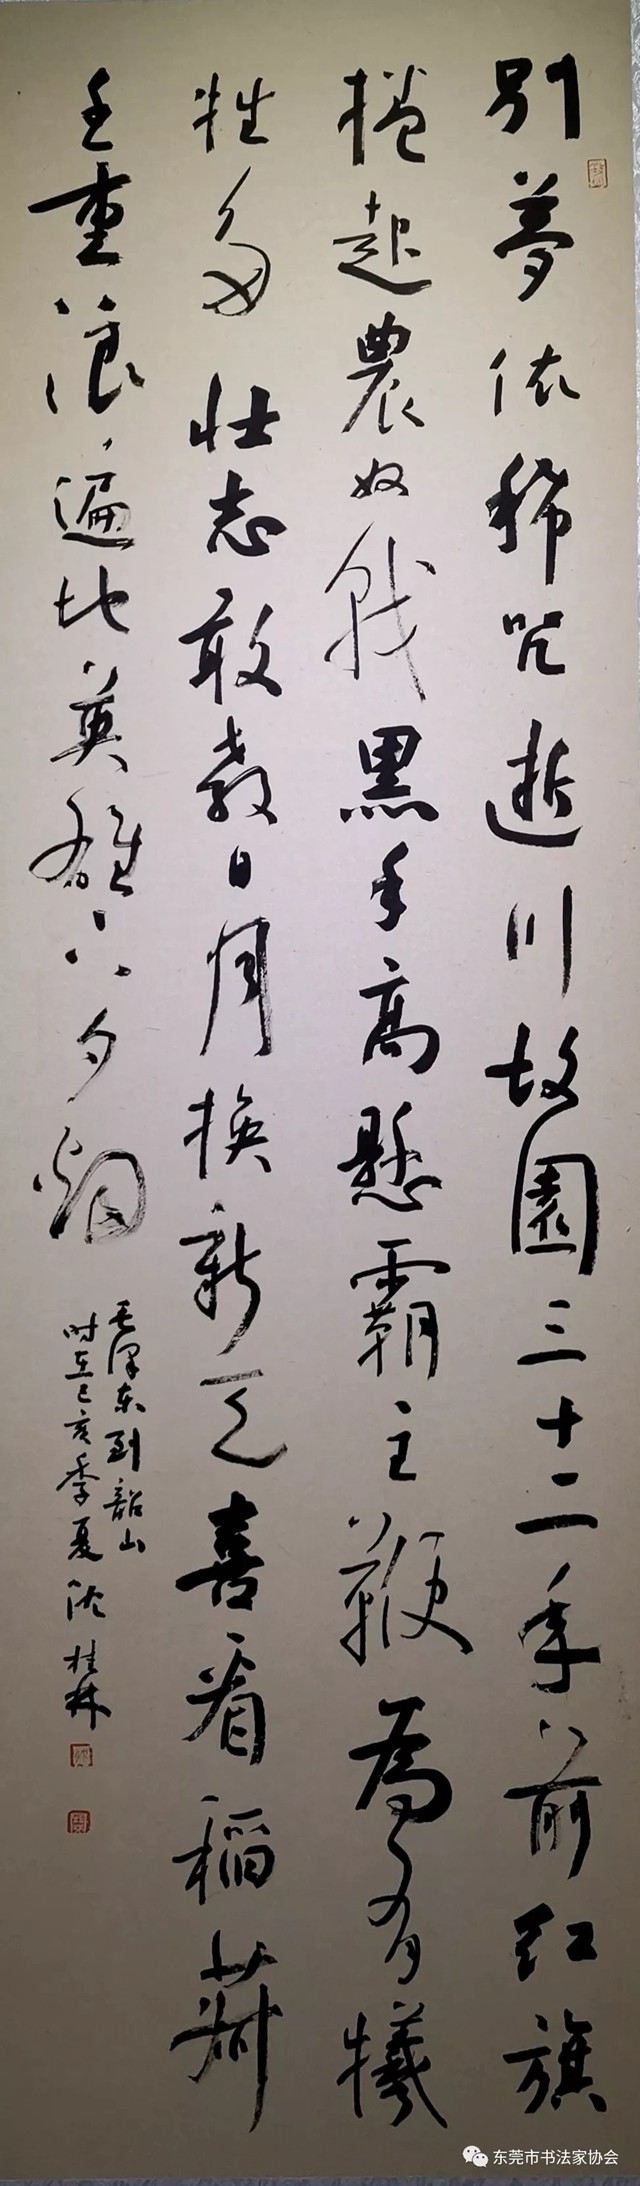 别夢依稀咒逝川故園三十二年前红旗
捲起農奴戟黑手高懸霸主鞭為有犧
牲多壮志敢教日月换新天喜看稻菽
千重浪遍地英雄下夕烟
毛泽东到韶山
时在己亥季夏沈桂林
东莞市书法家协会